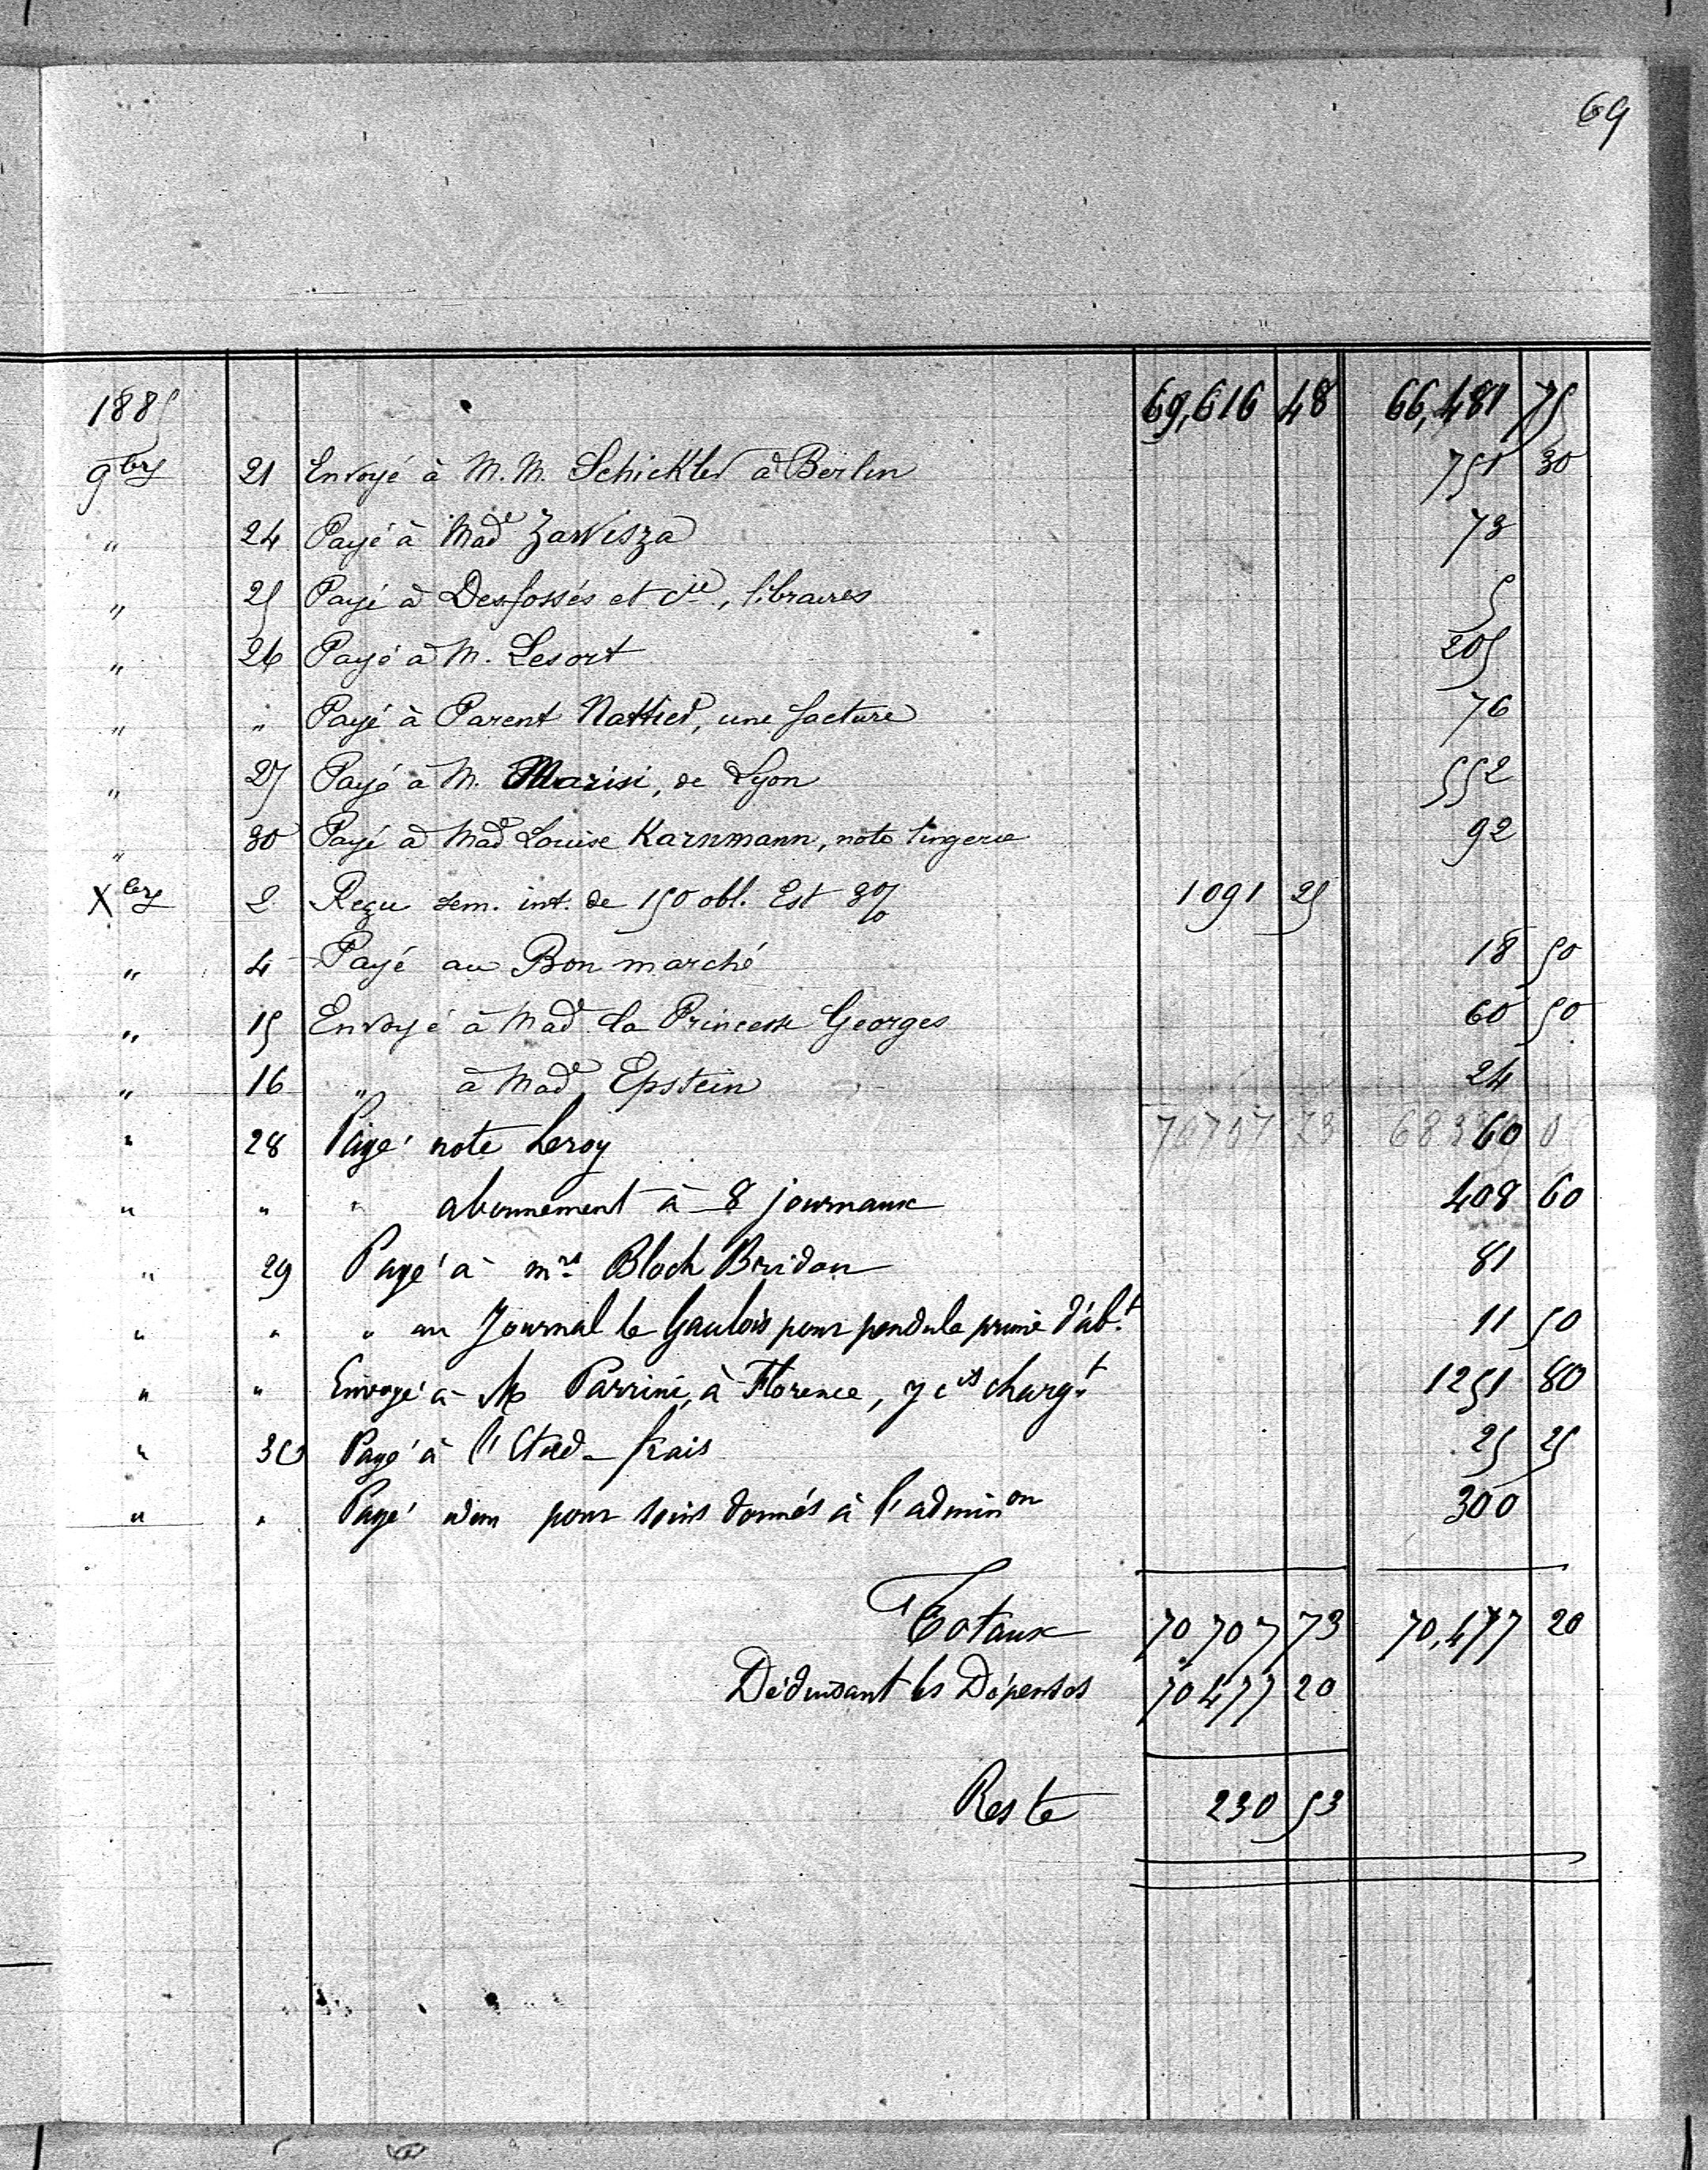 69
1885 69,616 48 66,481 75
9bre 21 Envoyé à M.M. Schickler à Berlin 751 30
" 24 Payé à Made Zawisza 73
" 25 Payé à Desfossés et Cie, libraires 5
" 26 Payé à M. Lesort 205
" " Payé à Parent Nattier, une facture 76
" 27 Payé à M. Marisi, de Lyon 552
" 30 Payé à Made Louise Karnmann, note lingerie 92
Xbre 2 Reçu sem. int. de 150 obl. Est 3% 1091 25
" 4 Payé au Bon marché 18 50
" 15 Envoyé à Made la Princesse Georges 60 50
" 16 " à Made Epstein 24
70707 73 68339 05
" 28 Payé note Leroy 60
" " " abonnement à 8 journaux 408 60
" 29 Payé à mrs Bloch Bridan 81
" " " au Journal le Gaulois pour pendule prime d'abt. 11 50
" " Envoyé à M Parrini, à Florence, y cis chargt. 1251 80
" 30 Payé à frais 25 25
" " Payé pour soins donnés à l'adminon 300
Totaux 70707 73 70,477 20
Déduisant les Dépenses 70477 20
Reste 230 53